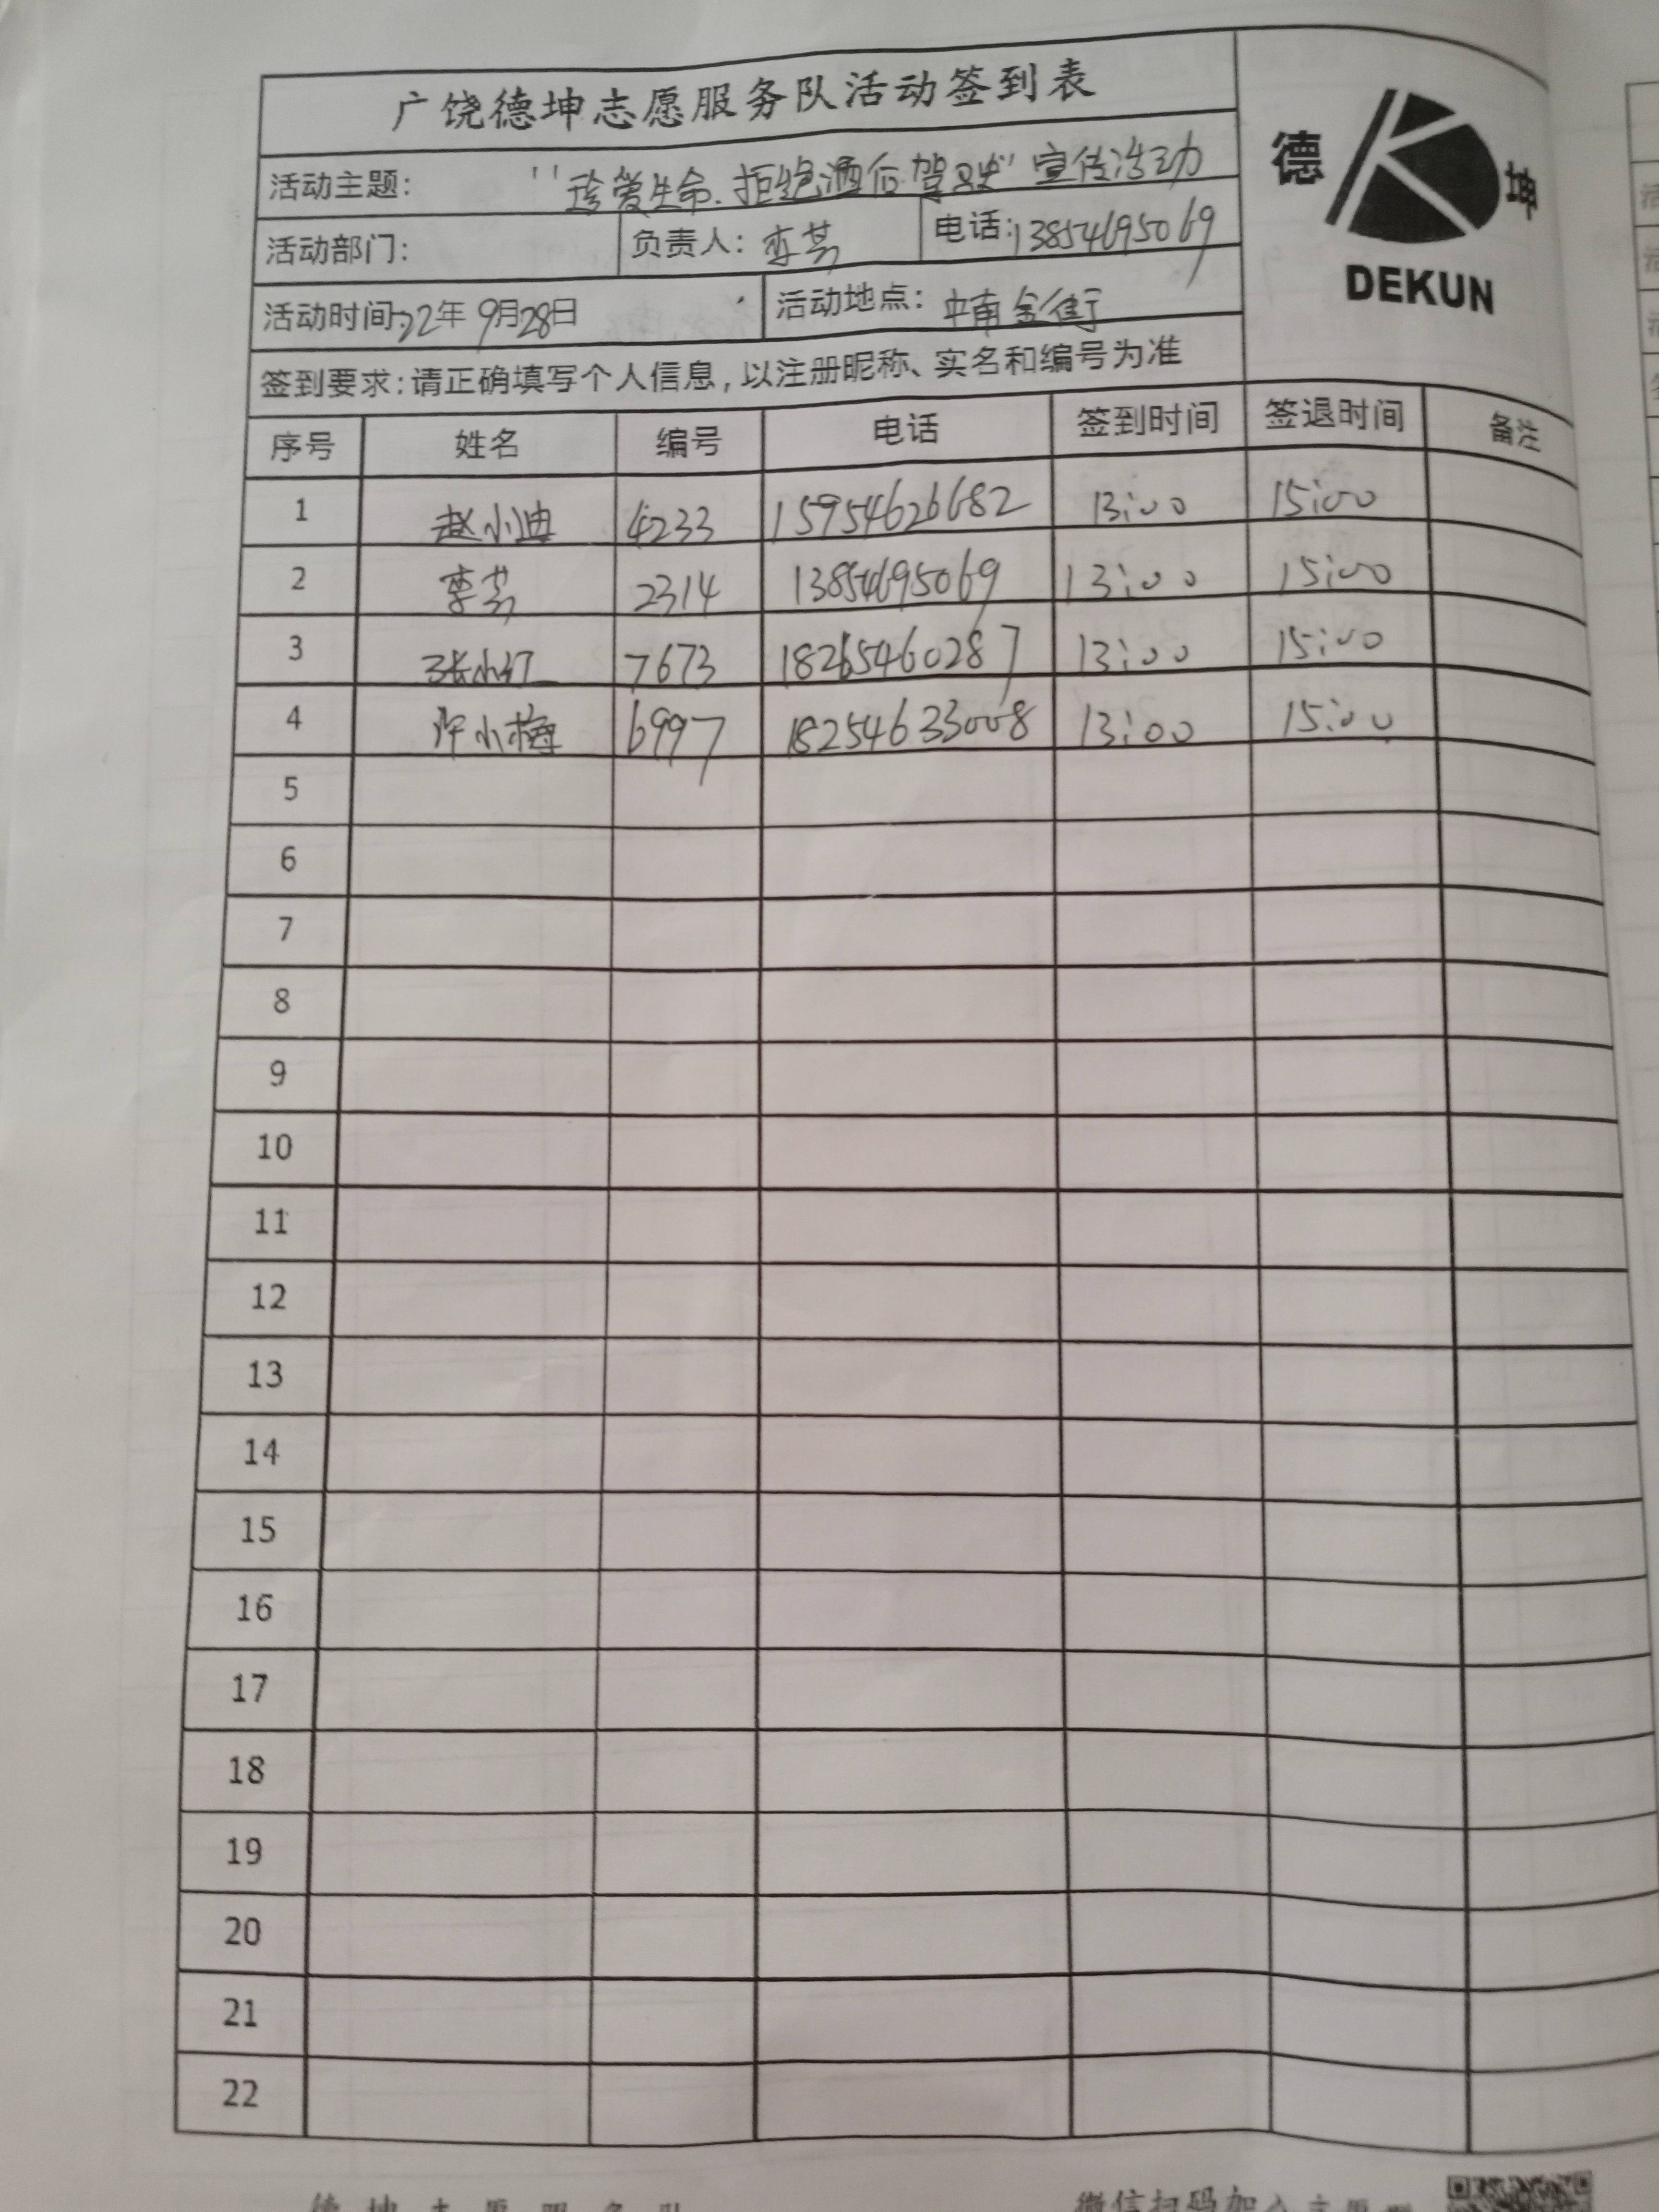 广饶德坤志愿服务队活动签到表
德 坤
DEKUN
活动主题: "珍爱生命.拒绝酒后驾驶"宣传活动
活动部门: 负责人: 李芸 电话:13854695069
活动时间:22年9月28日 活动地点: 中南金街
签到要求:请正确填写个人信息,以注册昵称、实名和编号为准
序号 姓名 编号 电话 签到时间 签退时间 备注
1 赵小迪 4233 15954626682 13:00 15:00
2 李芸 2314 13854695069 13:00 15:00
3 张小红 7673 18265460287 13:00 15:00
4 许小梅 6997 18254633008 13:00 15:00
5
6
7
8
9
10
11
12
13
14
15
16
17
18
19
20
21
22
德坤志愿服务队 微信扫码加入志愿